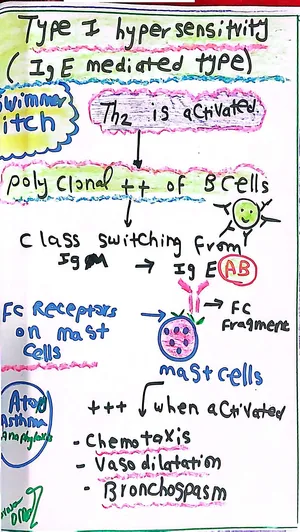 Type I hypersensitivity
( IgE mediated type)
swimmer
itch
Th2 is activated
polyclonal ++ of B cells
Class switching from
IgM → IgE AB
FC Receptors
on mast
cells
→ FC
Fragment
mast cells
Atopy
Asthma
Anaphylaxis
+++ when activated
- Chemotaxis
- Vasodilatation
- Bronchospasm